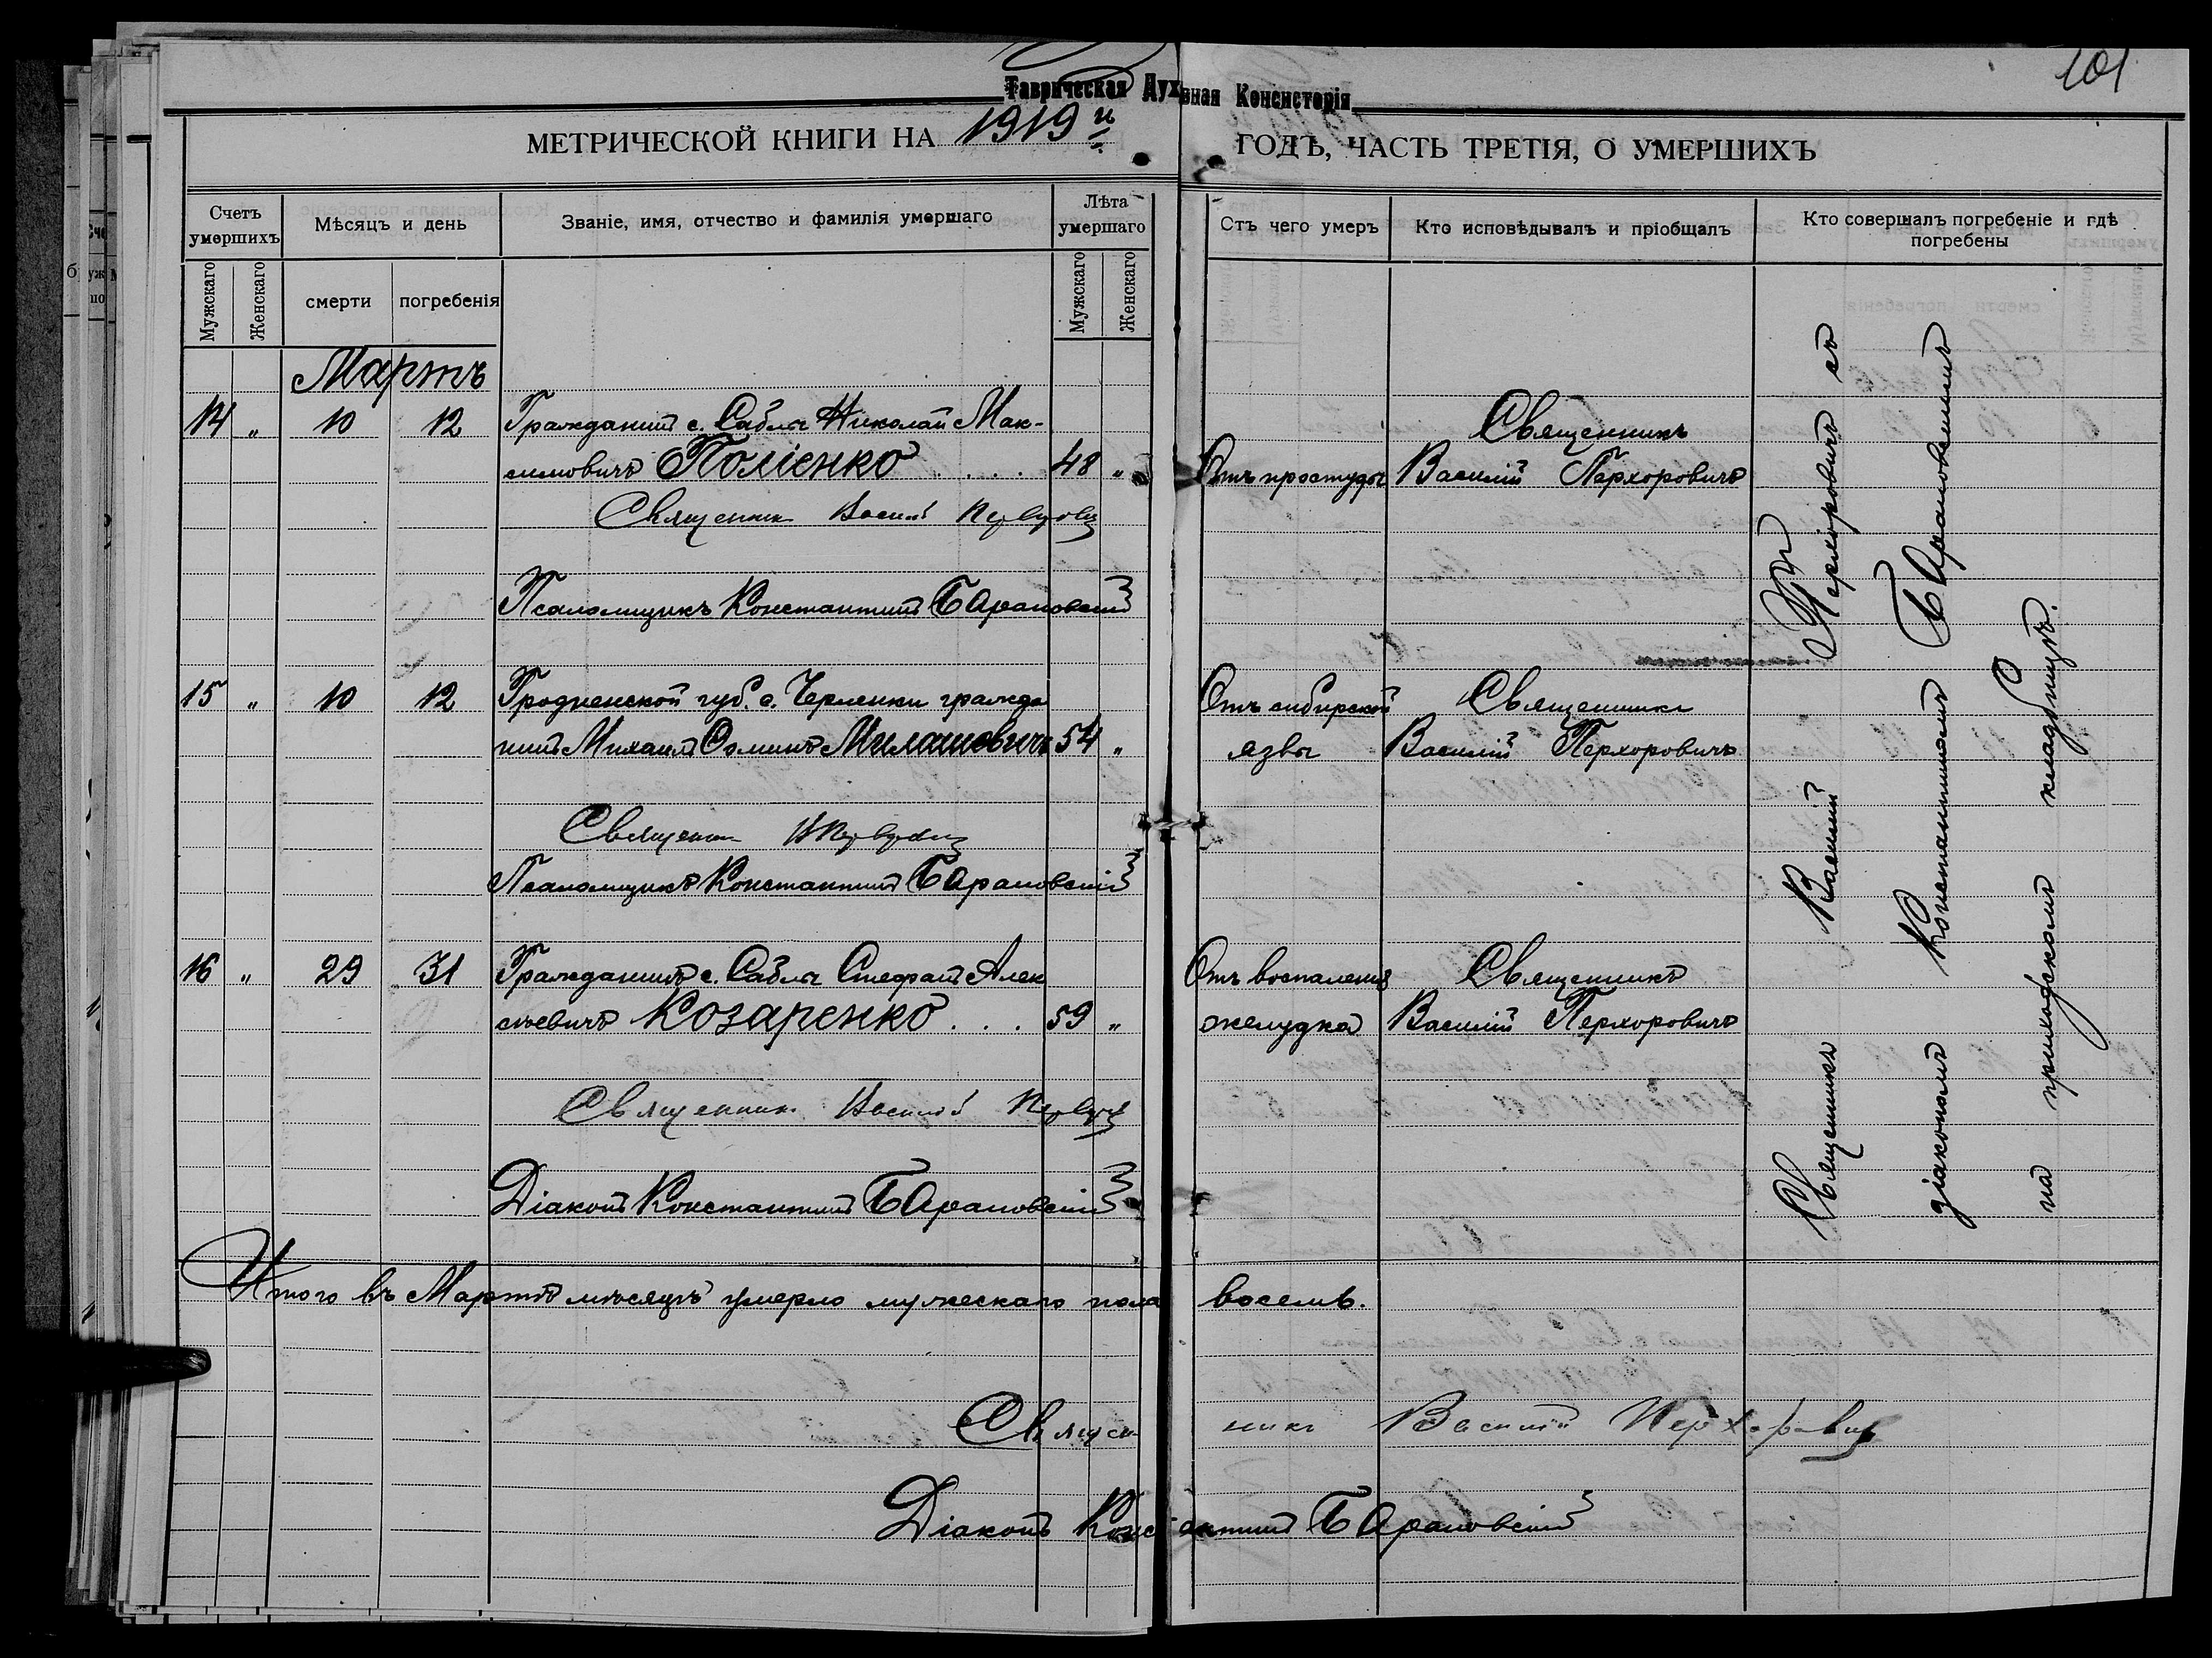 101
Таврическая Духовная Консисторія
МЕТРИЧЕСКОЙ КНИГИ НА 1919й ГОДЪ, ЧАСТЬ ТРЕТІЯ, О УМЕРШИХЪ
Счетъ умершихъ
Мѣсяцъ и день
Званіе, имя, отчество и фамилія умершаго
Лѣта умершаго
Отъ чего умеръ
Кто исповѣдывалъ и пріобщалъ
Кто совершалъ погребеніе и гдѣ погребены
Мужскаго
Женскаго
смерти
погребенія
Мужскаго
Женскаго
Мартъ
14 " 10 12 Гражданинъ с. Саблы Николай Мак- Священникъ
симовичъ Поліенко . . . . 48 " Отъ простуды Василій Перхоровичъ
Священник Василій
Псаломщикъ Константинъ Барановскій
15 " 10 12 Гродненской губ. с. Черленки гражда Отъ сибирской Священникъ
нинъ Михаилъ Милашовичъ 54 " язвы Василій Перхоровичъ
Священник
Псаломщикъ Константинъ Барановскій
16 " 29 31 Гражданинъ с. Саблы Стефанъ Алек Отъ воспаленія Священникъ
сѣевичъ Козаренко . . . 59 " желудка Василій Перхоровичъ
Священник Василій
Діаконъ Константинъ Барановскій
Священникъ Василій Перхоровичъ съ
діакономъ Константиномъ Барановскимъ
на приходскомъ кладбищѣ.
Итого въ Мартѣ мѣсяцѣ умерло мужескаго пола восемь.
Священникъ Василій Перхоровичъ
Діаконъ Константинъ Барановскій